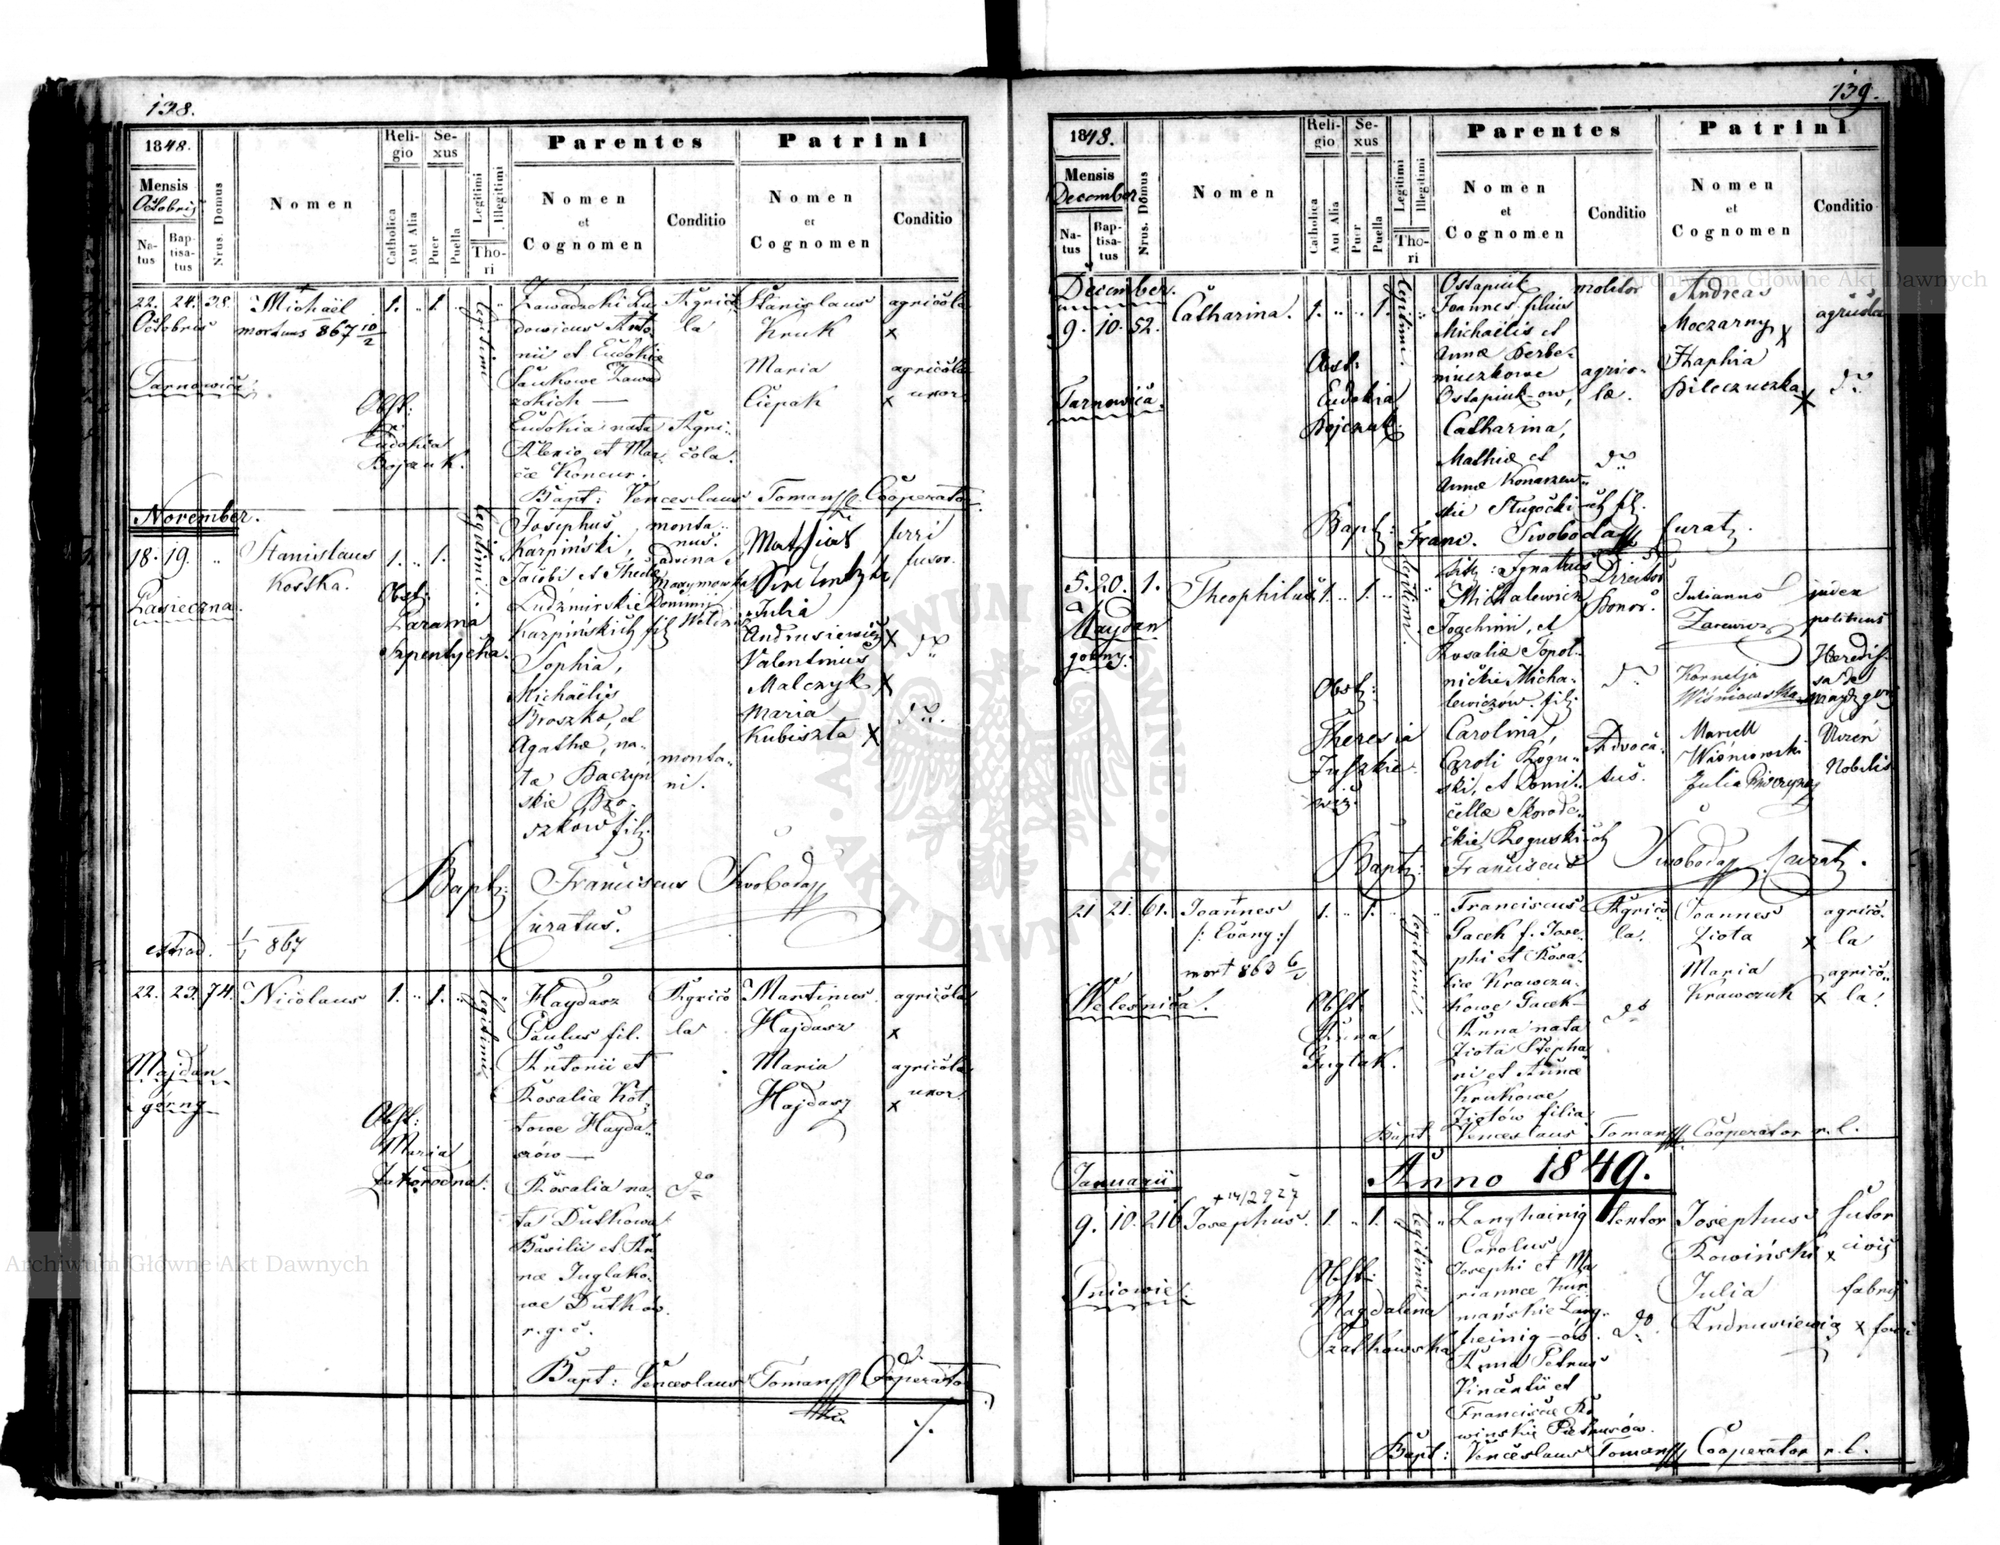 138.
1848.
Mensis
Octobris
Na-
tus
Bap-
tisa-
tus
Nrus. Domus
Nomen
Reli-
gio
Catholica
Aut Alia
Se-
xus
Puer
Puella
Legitimi
Illegitimi
Tho-
ri
Parentes
Nomen
et
Cognomen
Conditio
Patrini
Nomen
et
Cognomen
Conditio
22. 24. 28.
Octobris
Tarnowica
Michaël
mortuus 867 10/2
1. " 1. "
Legitimi
Obst:
Eudokia
Bojczuk.
Zawadzki Lu-
dovicus Anto-
nii et Eudokiæ
Saukowe Zawad
zkich —
Eudokia nata
Alexio et Mar-
iæ Koncur.
Agrico
la
Agri-
cola.
Stanislaus
Kruk
Maria
Ciepak
agricola
x
agricola
x uxor.
Bapt: Venceslaus Toman Cooperator
November.
18. 19. "
Zarzieczna.
Stanislaus
Kostka.
1. " 1.
Legitimi.
Obst:
Barama
Szpentycha.
Josephus
Karpiński,
Jacobi et Theclæ
Ludźmirskie
Karpińskich fil.
Sophia,
Michaëlis
Broszko, et
Agathæ, na-
ta Baczyn
skie Bro-
szków filz.
monta-
nus.
monta-
ni.
Mathias
Julia
Andrusiewicz x
Valentinus
Malczyk x
Maria
Kubiszta x
ferri
fusor.
do
do.
Bapt: Franciscus Swoboda
Curatus.
extrad. 1/1 867
22. 23. 74.
Majdan
górny
Nicolaus
1. " 1. "
Legitimi
Obst:
Maria
Zahorodna.
Haydasz
Paulus fil.
Antonii et
Rosaliæ Kot-
towe Hayda-
szów —
Rosalia na-
ta Dutkowa
Basilii et An
næ Juglako-
we Dutków.
r. g. c.
Agrico
la
do
Martinus
Hajdasz
Maria
Hajdasz
agricola
x
agricola
x uxor
Bapt: Venceslaus Toman Cooperator
139.
1848.
Mensis
December
Na-
tus
Bap-
tisa-
tus
Nrus. Domus
Nomen
Reli-
gio
Catholica
Aut Alia
Se-
xus
Puer
Puella
Legitimi
Illegitimi
Tho-
ri
Parentes
Nomen
et
Cognomen
Conditio
Patrini
Nomen
et
Cognomen
Conditio
December.
9. 10. 52.
Tarnowica.
Catharina.
1. " " 1.
Legitimi
Obst:
Eudokia
Bojczuk.
Ostapiuk
Joannes, filius
Michaëlis et
Annæ Berbe-
niuczkowe
Ostapiuk-ow,
Catharina,
Mathiæ et
Annæ Konarzew-
skie Sługocki-ch fil.
molitor
agrico-
læ.
do
Andreas
Moczarny x
Zaphia
Bileczuczka x
agricola
do
Bapt: Franc. Swoboda Curatz.
5. 20. 1.
Majdan
górny.
Theophilus
1. " 1. "
Legitimi
Obst:
Theresia
Juszkie-
wicz
Ignatius
Michalewicz
Joachimi, et
Rosaliæ Topol-
nickie Micha-
lewiczów. filz.
Carolina,
Caroli Rogu-
ski, et Domi-
cellæ Skorode-
ckie Roguski-ch
Director
Bonor.
do
Advoca-
tus.
Julianus
Zarewicz
Kornelja
Wiśniowska
Marcell
Wiśniowski
Julia
judex
politicus
Heredis-
sa de
Majd. gor.
Nobilis
Bapt: Franciscus Swoboda Curatz.
21 21. 61.
Weleśnica.
Joannes
/: Evang :/
mort 863 6/2
1. " 1. "
Legitimi.
Obst:
Anna
Juglak.
Franciscus
Gacek f. Jose-
phi et Rosa-
liæ Krawczu-
kowe Gacek —
Anna nata
Ziota Stepha-
ni et Annæ
Krukowe
Ziotów filia
Agrico
la.
do
Joannes
Ziota x
Maria
Krawczuk x
agrico-
la
agrico-
la.
Bapt Venceslaus Toman Cooperator r. l.
Anno 1849.
Januarii
9. 10. 216
Pniowie.
+ 14/2 927
Josephus.
1. " 1. "
Legitimi
Obst:
Magdalena
Szatkowska
Langhainig
Carolus
Josephi et Ma
riannæ Kur
mańskie Lang-
heinig-ów.
Anna Petrus
Vincentii et
Franciscæ Ro
wińskie Pietrusów.
do.
Josephus
Rowiński x
Julia
Andrusiewicz x
sutor
civis
fabri
ferri
Bapt: Venceslaus Toman Cooperator r. l.
ARCHIWUM GŁÓWNE AKT DAWNYCH
Archiwum Główne Akt Dawnych
Archiwum Główne Akt Dawnych